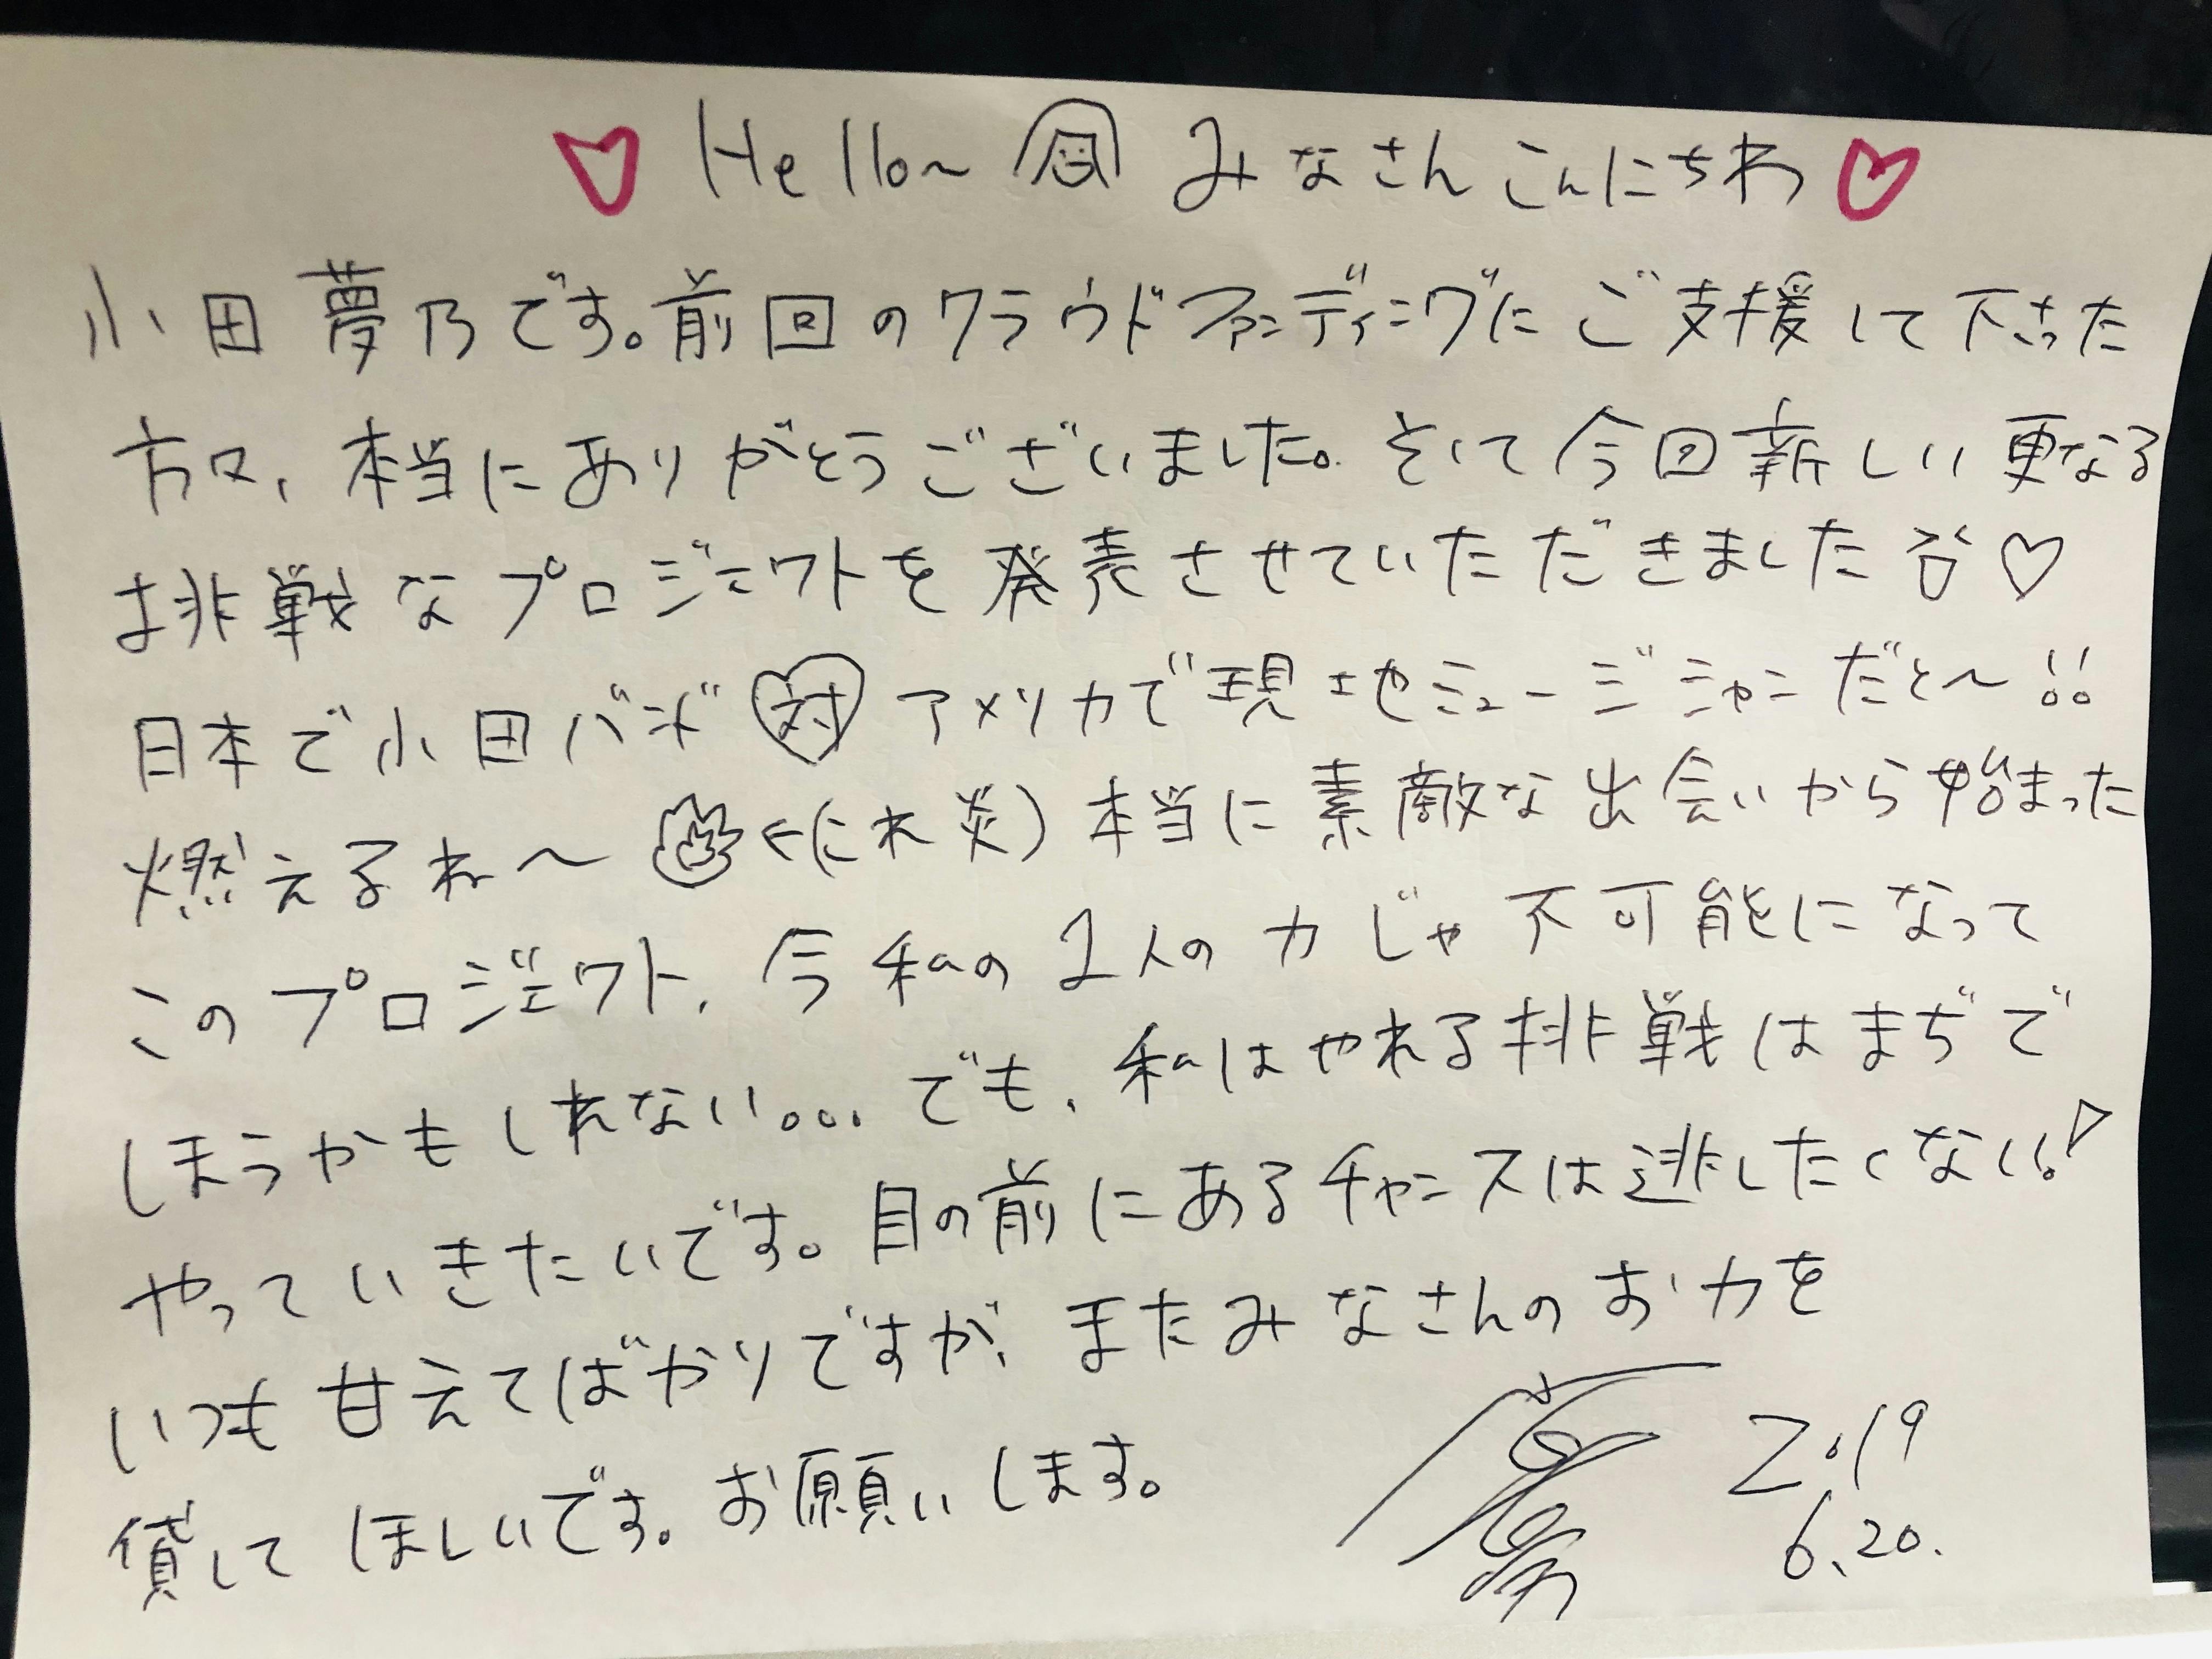 ♡ Hello~ みなさんこんにちわ ♡
小田夢乃です。前回のクラウドファンディングにご支援して下さった
方々、本当にありがとうございました。そして今回新しい更なる
挑戦なプロジェクトを発売させていただきました♡
日本で小田バンド 対 アメリカで現地ミュージジャンだと〜!!
燃えるね〜 ←(これ炎) 本当に素敵な出会いから始まった
このプロジェクト、今私の2人の力じゃ不可能になって
しまうかもしれない... でも、私はやれる挑戦はまぢで
やっていきたいです。目の前にあるチャンスは逃したくない!
いつも甘えてばかりですが、またみなさんのお力を
貸してほしいです。お願いします。
2019
6.20.